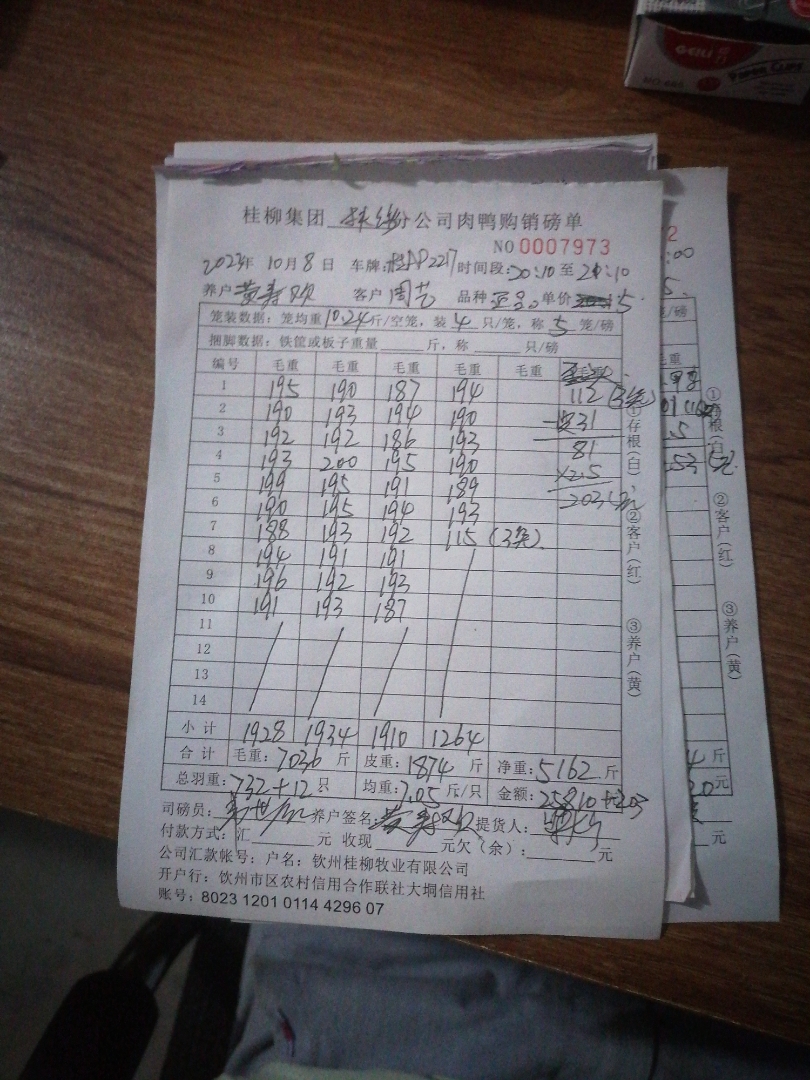 GELI
PAPER CLIPS
桂柳集团 分公司肉鸭购销磅单
NO 0007973
2023年 10月8日 车牌: 时间段:20:10 至 21:10
养户 黄寿欢 客户 周芒 品种 单价 5
笼装数据:笼均重10.24斤/空笼,装 4 只/笼,称 5 笼/磅
捆脚数据:铁筐或板子重量 斤,称 只/磅
编号 毛重 毛重 毛重 毛重 毛重 毛重
1 195 190 187 194 112 (3笼)
2 190 193 194 190 31
3 192 192 186 193 81
4 193 200 195 190 ×2.5
5 199 195 191 189 203
6 190 195 194 193
7 188 193 192 115 (3笼)
8 194 191 191
9 196 192 193
10 191 193 187
11
12
13
14
小计 1928 1934 1910 1264
合计 毛重:7036 斤 皮重:1874 斤 净重:5162 斤
总羽重:732+12 只 均重:7.05 斤/只 金额:25810+203
司磅员: 养户签名: 黄寿欢 提货人:
付款方式:汇 元 收现 元欠(余): 元
公司汇款帐号:户名:钦州桂柳牧业有限公司
开户行:钦州市区农村信用合作联社大垌信用社
账号:8023 1201 0114 4296 07
①存根(白)
②客户(红)
③养户(黄)
①存根(白)
②客户(红)
③养户(黄)